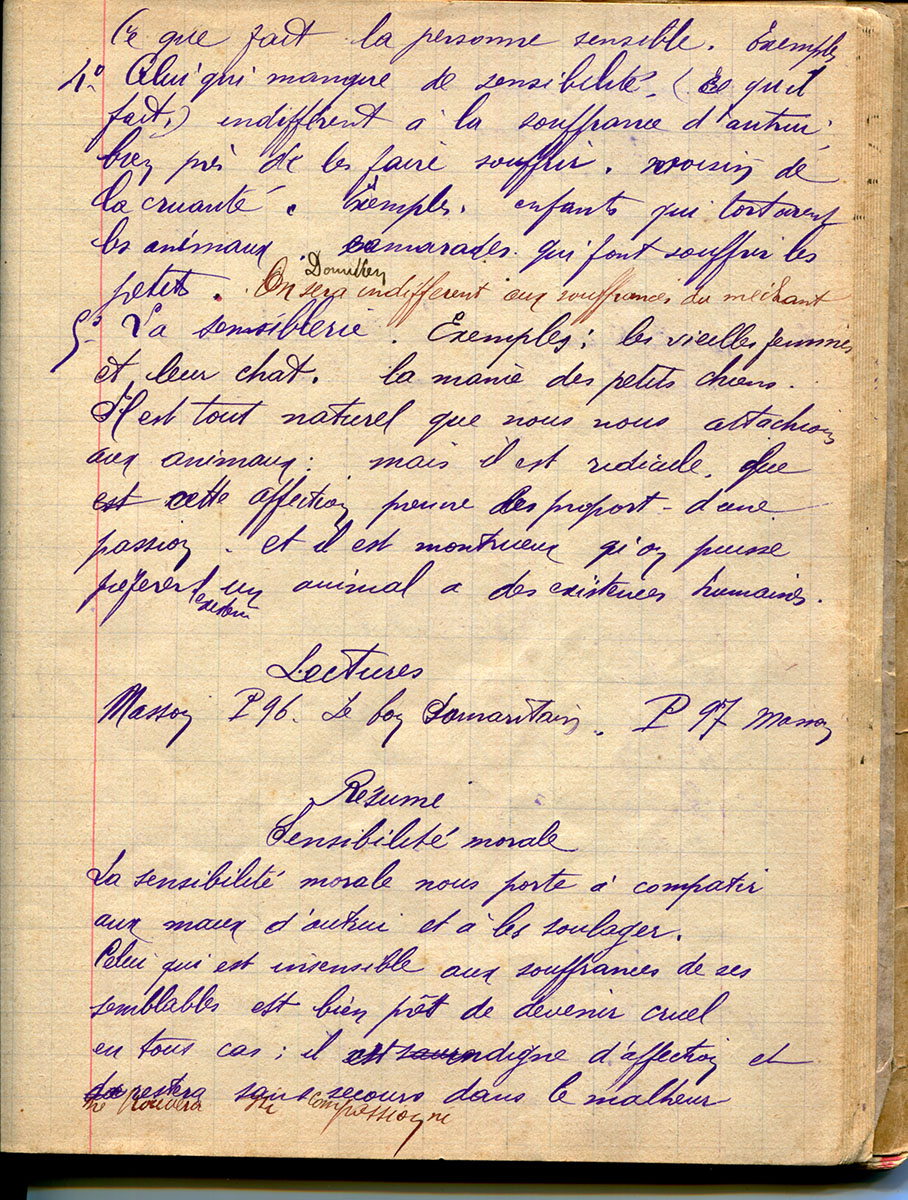 Ce que fait la personne sensible. Exemples
4°. Celui qui manque de sensibilité. (Ce qu'il
fait,) indifférent à la souffrance d'autrui.
bien près de les faire souffrir. voisin de
la cruauté. Exemples. enfants qui torturent
les animaux. camarades qui font souffrir les
Domitien
petits. On sera indifférent aux souffrances du méchant
5° La sensiblerie. Exemples: les vieilles femmes
et leur chat. la manie des petits chiens.
Il est tout naturel que nous nous attachions
aux animaux: mais il est ridicule, que
est cette affection prenne les proport- d'une
passion. et il est montrueux qu'on puisse
préférer un animal a des existences humaines.
Lectures
Masson P 96. Le bon Samaritain. P 97 Masson
Résumé
Sensibilité morale
La sensibilité morale nous porte à compatir
aux maux d'autrui et à les soulager.
Celui qui est insensible aux souffrances de ses
semblables est bien prêt de devenir cruel
en tous cas; il est indigne d'affection et
restera sans secours dans le malheur
ne trouvera ni compassion ni